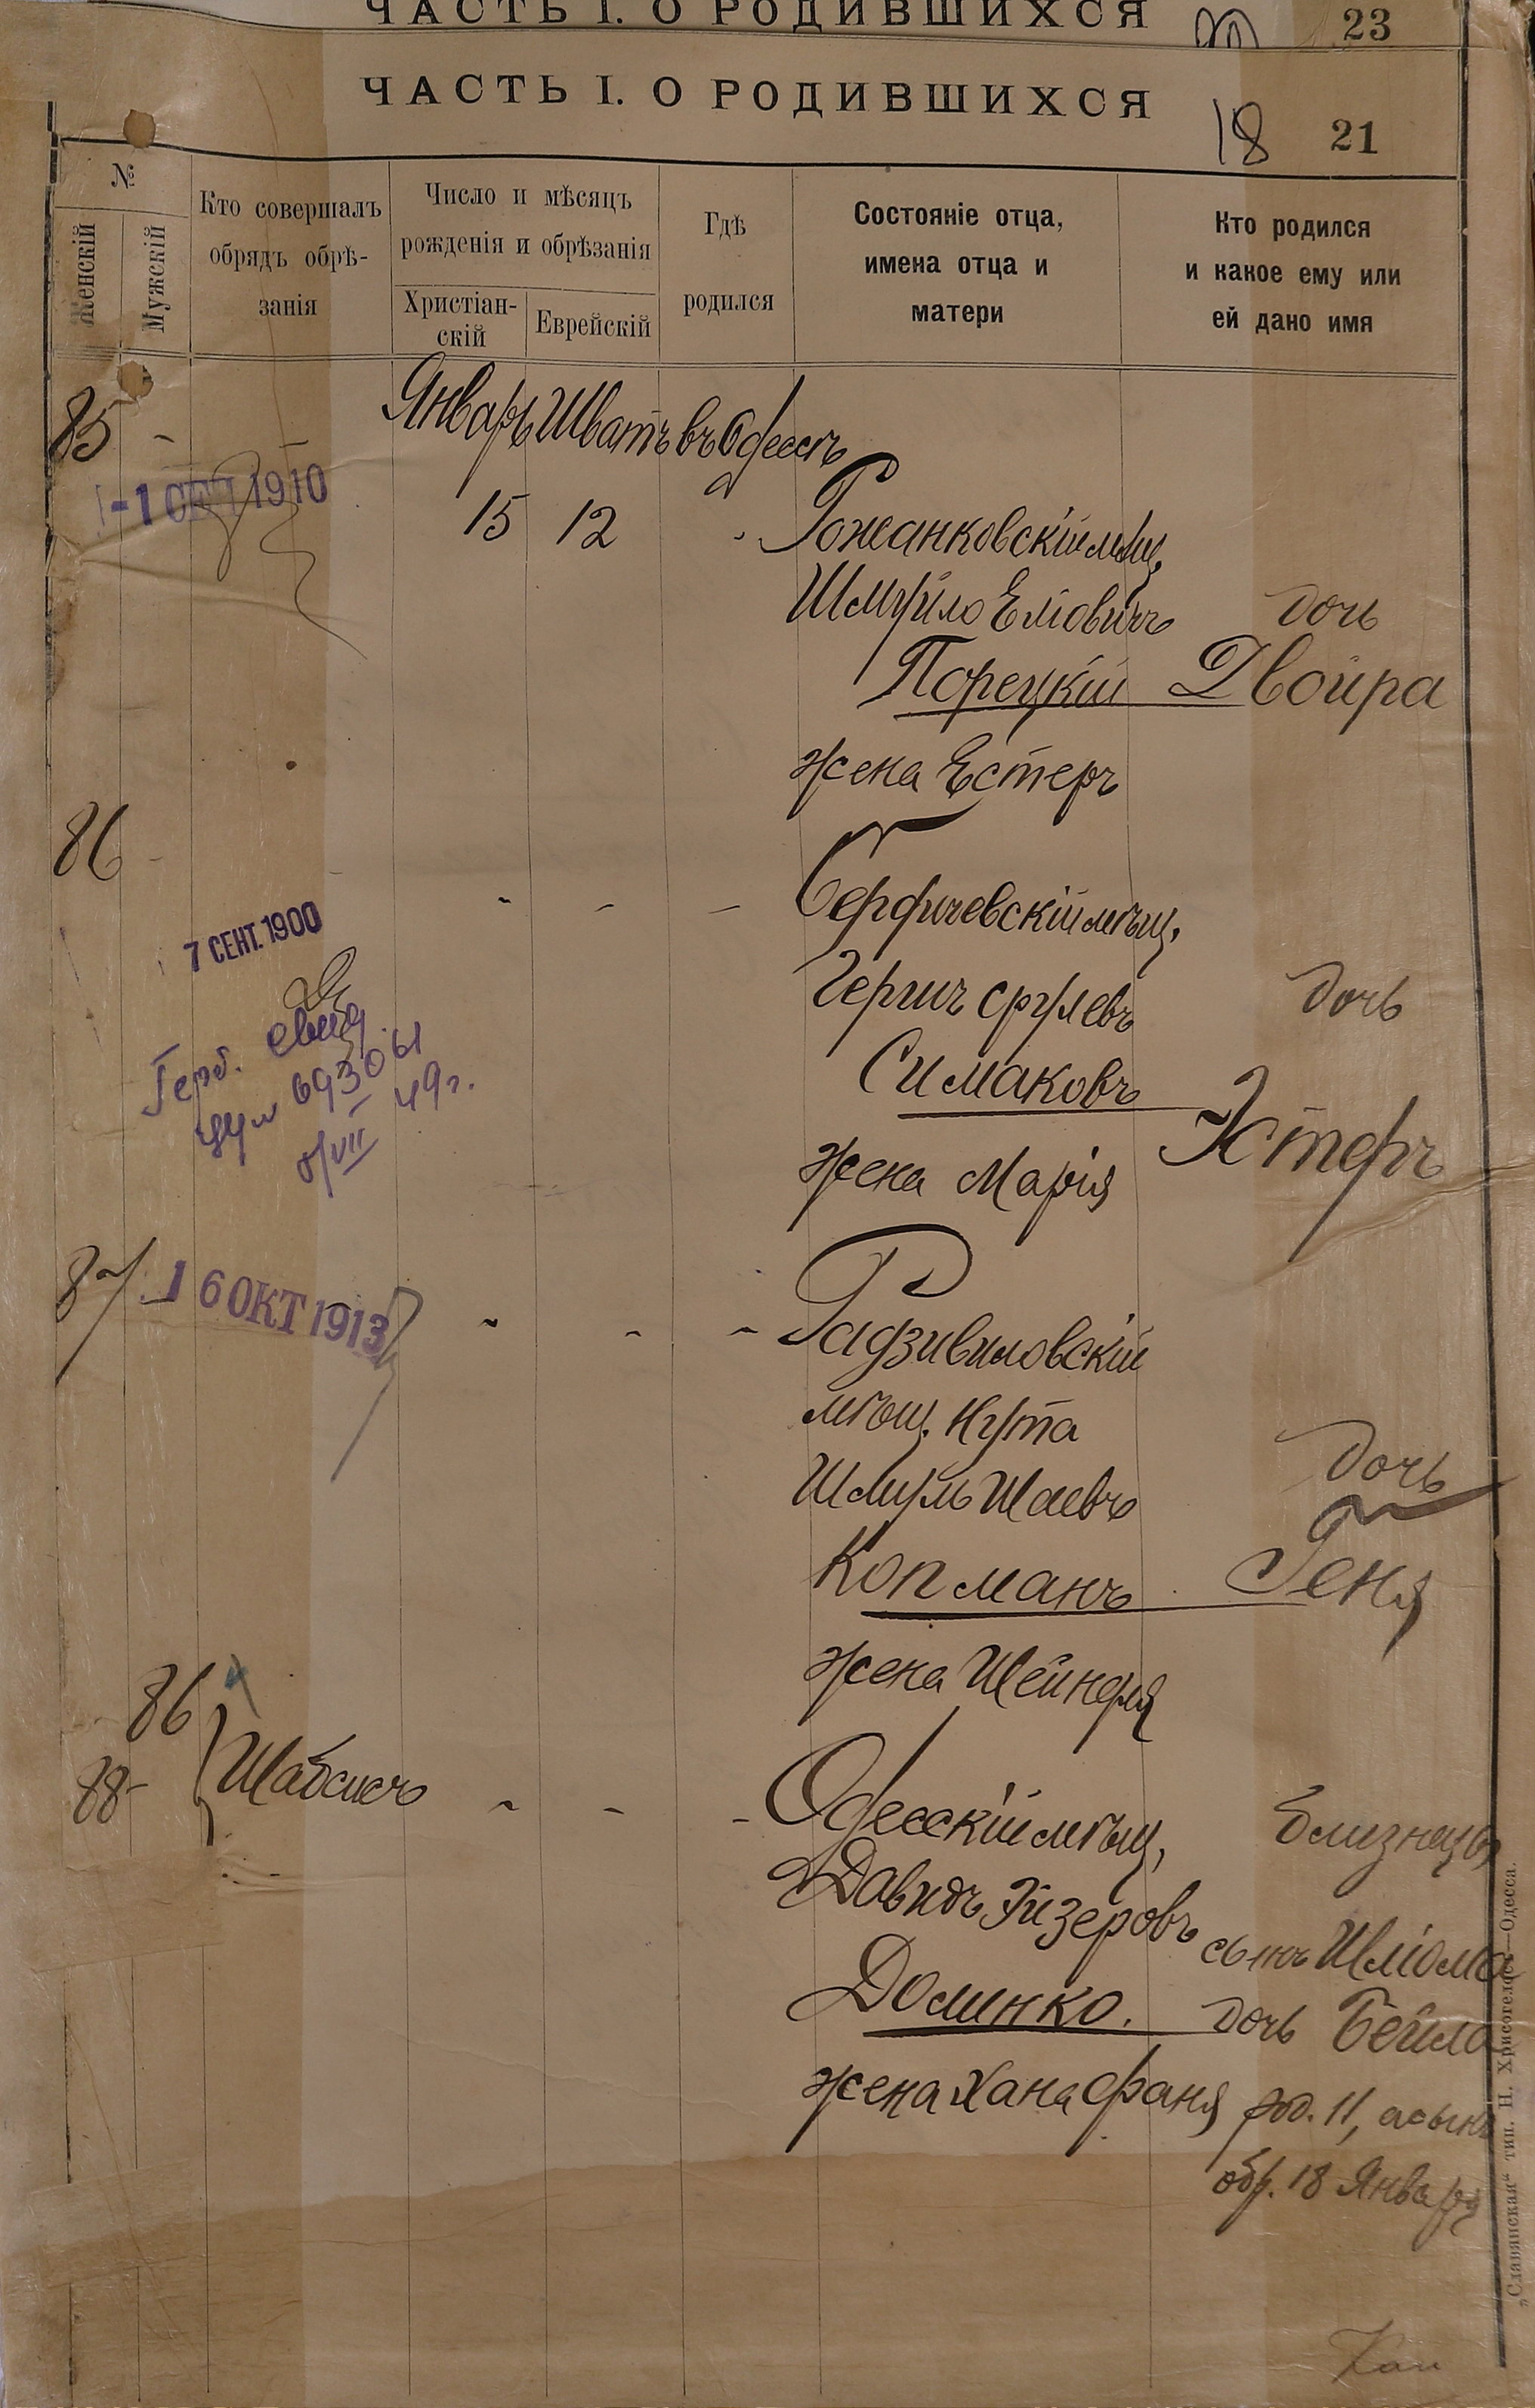 ЧАСТЬ I. О РОДИВШИХСЯ 23
ЧАСТЬ I. О РОДИВШИХСЯ
18 21
№
Женскій
Мужскій
Кто совершалъ
обрядъ обрѣ-
занія
Число и мѣсяцъ
рожденія и обрѣзанія
Христіан-
скій
Еврейскій
Гдѣ
родился
Состояніе отца,
имена отца и
матери
Кто родился
и какое ему или
ей дано имя
85 - - Январь Шватъ въ Одессѣ
-1 СЕН 1910
15 12 " Рожанковскій мѣщ.
Шмуйло Еліовичъ дочь
Порецкій Двойра
жена Естеръ
86 - " - - Бердичевскій мѣщ.
7 СЕНТ. 1900
Гершъ Срулевъ дочь
Симаковъ
Эстеръ
жена Марія
Герб. свид.
693061
8/VII 49 г.
87 - 16 ОКТ 1913 " - - Радзивиловскій
мѣщ. Нута
Шмуль Шаевъ дочь
Копманъ Геня
жена Шейндля
86
88 - Шабсисъ - - - Одесскій мѣщ. близнецы
Давидъ Эйзеровъ сынъ Шліома
Долинко. дочь Бейла
жена Хана Фаня род. 11, а сынъ
обр. 18 Января
„Славянская“ тип. Н. Хрисогелосъ—Одесса.